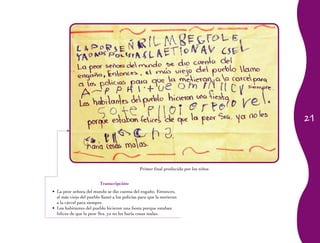 LAPDRSEÑRILMBEGPOLE,
La peor señora del mundo se dio cuenta del
engaño, Entonces, el más viejo del pueblo llamo
a los policias para que la metieran a la carcel para
siempre.
Los habitantes del pueblo hicieron una fiesta
porque estaban felices de que la peor Sra. ya no les
haria cosas malas.
21
Primer final producido por los niños
Transcripción:
• La peor señora del mundo se dio cuenta del engaño. Entonces,
el más viejo del pueblo llamó a los policías para que la metieran
a la cárcel para siempre.
• Los habitantes del pueblo hicieron una fiesta porque estaban
felices de que la peor Sra. ya no les haría cosas malas.